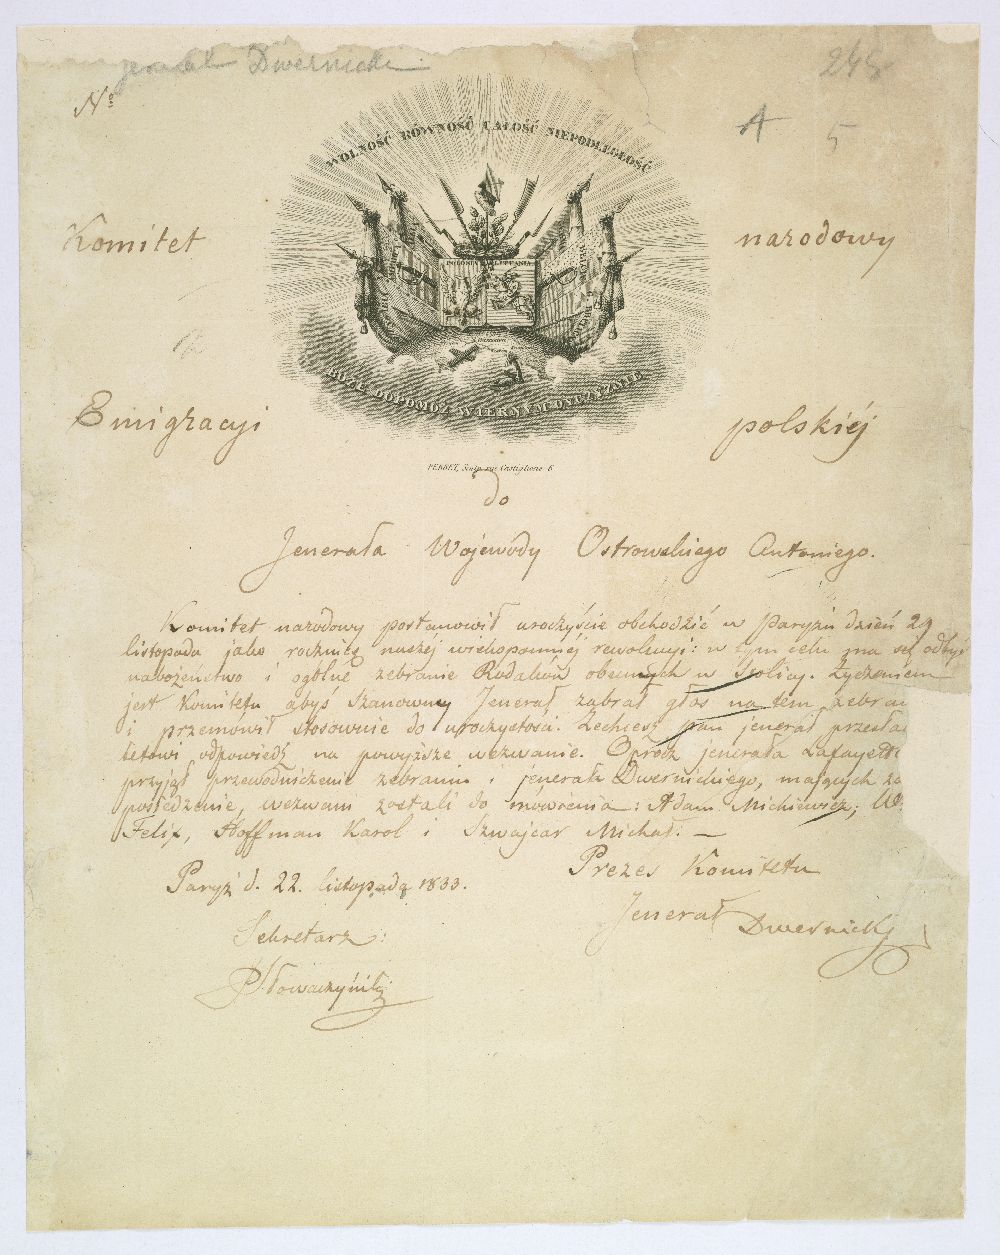 jenerał Dwernicki
245
Nº
A 5
WOLNOŚĆ RÓWNOŚĆ CAŁOŚĆ NIEPODLEGŁOŚĆ
Komitet narodowy
POLONIA LITUANIA
BOŻE DOPOMÓŻ WIERNYM OYCZYZNIE
Emigracyi polskiéj
PERRET, Sculp. rue Castiglione 6
do
Jenerała Wojewody Ostrowskiego Antoniego.
Komitet narodowy postanowił uroczyście obchodzić w Paryżu dzień 29
listopada jako rocznicę naszéj wiekopomnéj rewolucyi: w tym celu ma się odbyć
nabożeństwo i ogólne zebranie Rodaków obecnych w stolicy. Życzeniem
jest Komitetu abyś Szanowny Jenerał zabrał głos na tém zebra
i przemówił stosownie do uroczystości. Zechciesz pan jenerał przesła
tetowi odpowiedź na powyższe wezwanie. Oprócz jenerała Lafayett
przyjął przewodniczenie zebraniu i jenerała Dwernickiego, mających za
posiedzenie, wezwani zostali do mówienia: Adam Mickiewicz,
Felix, Hoffman Karol i Szwajcar Michał. —
Paryż d. 22. listopada 1833.
Prezes Komitetu
Jenerał Dwernicki
Sekretarz: